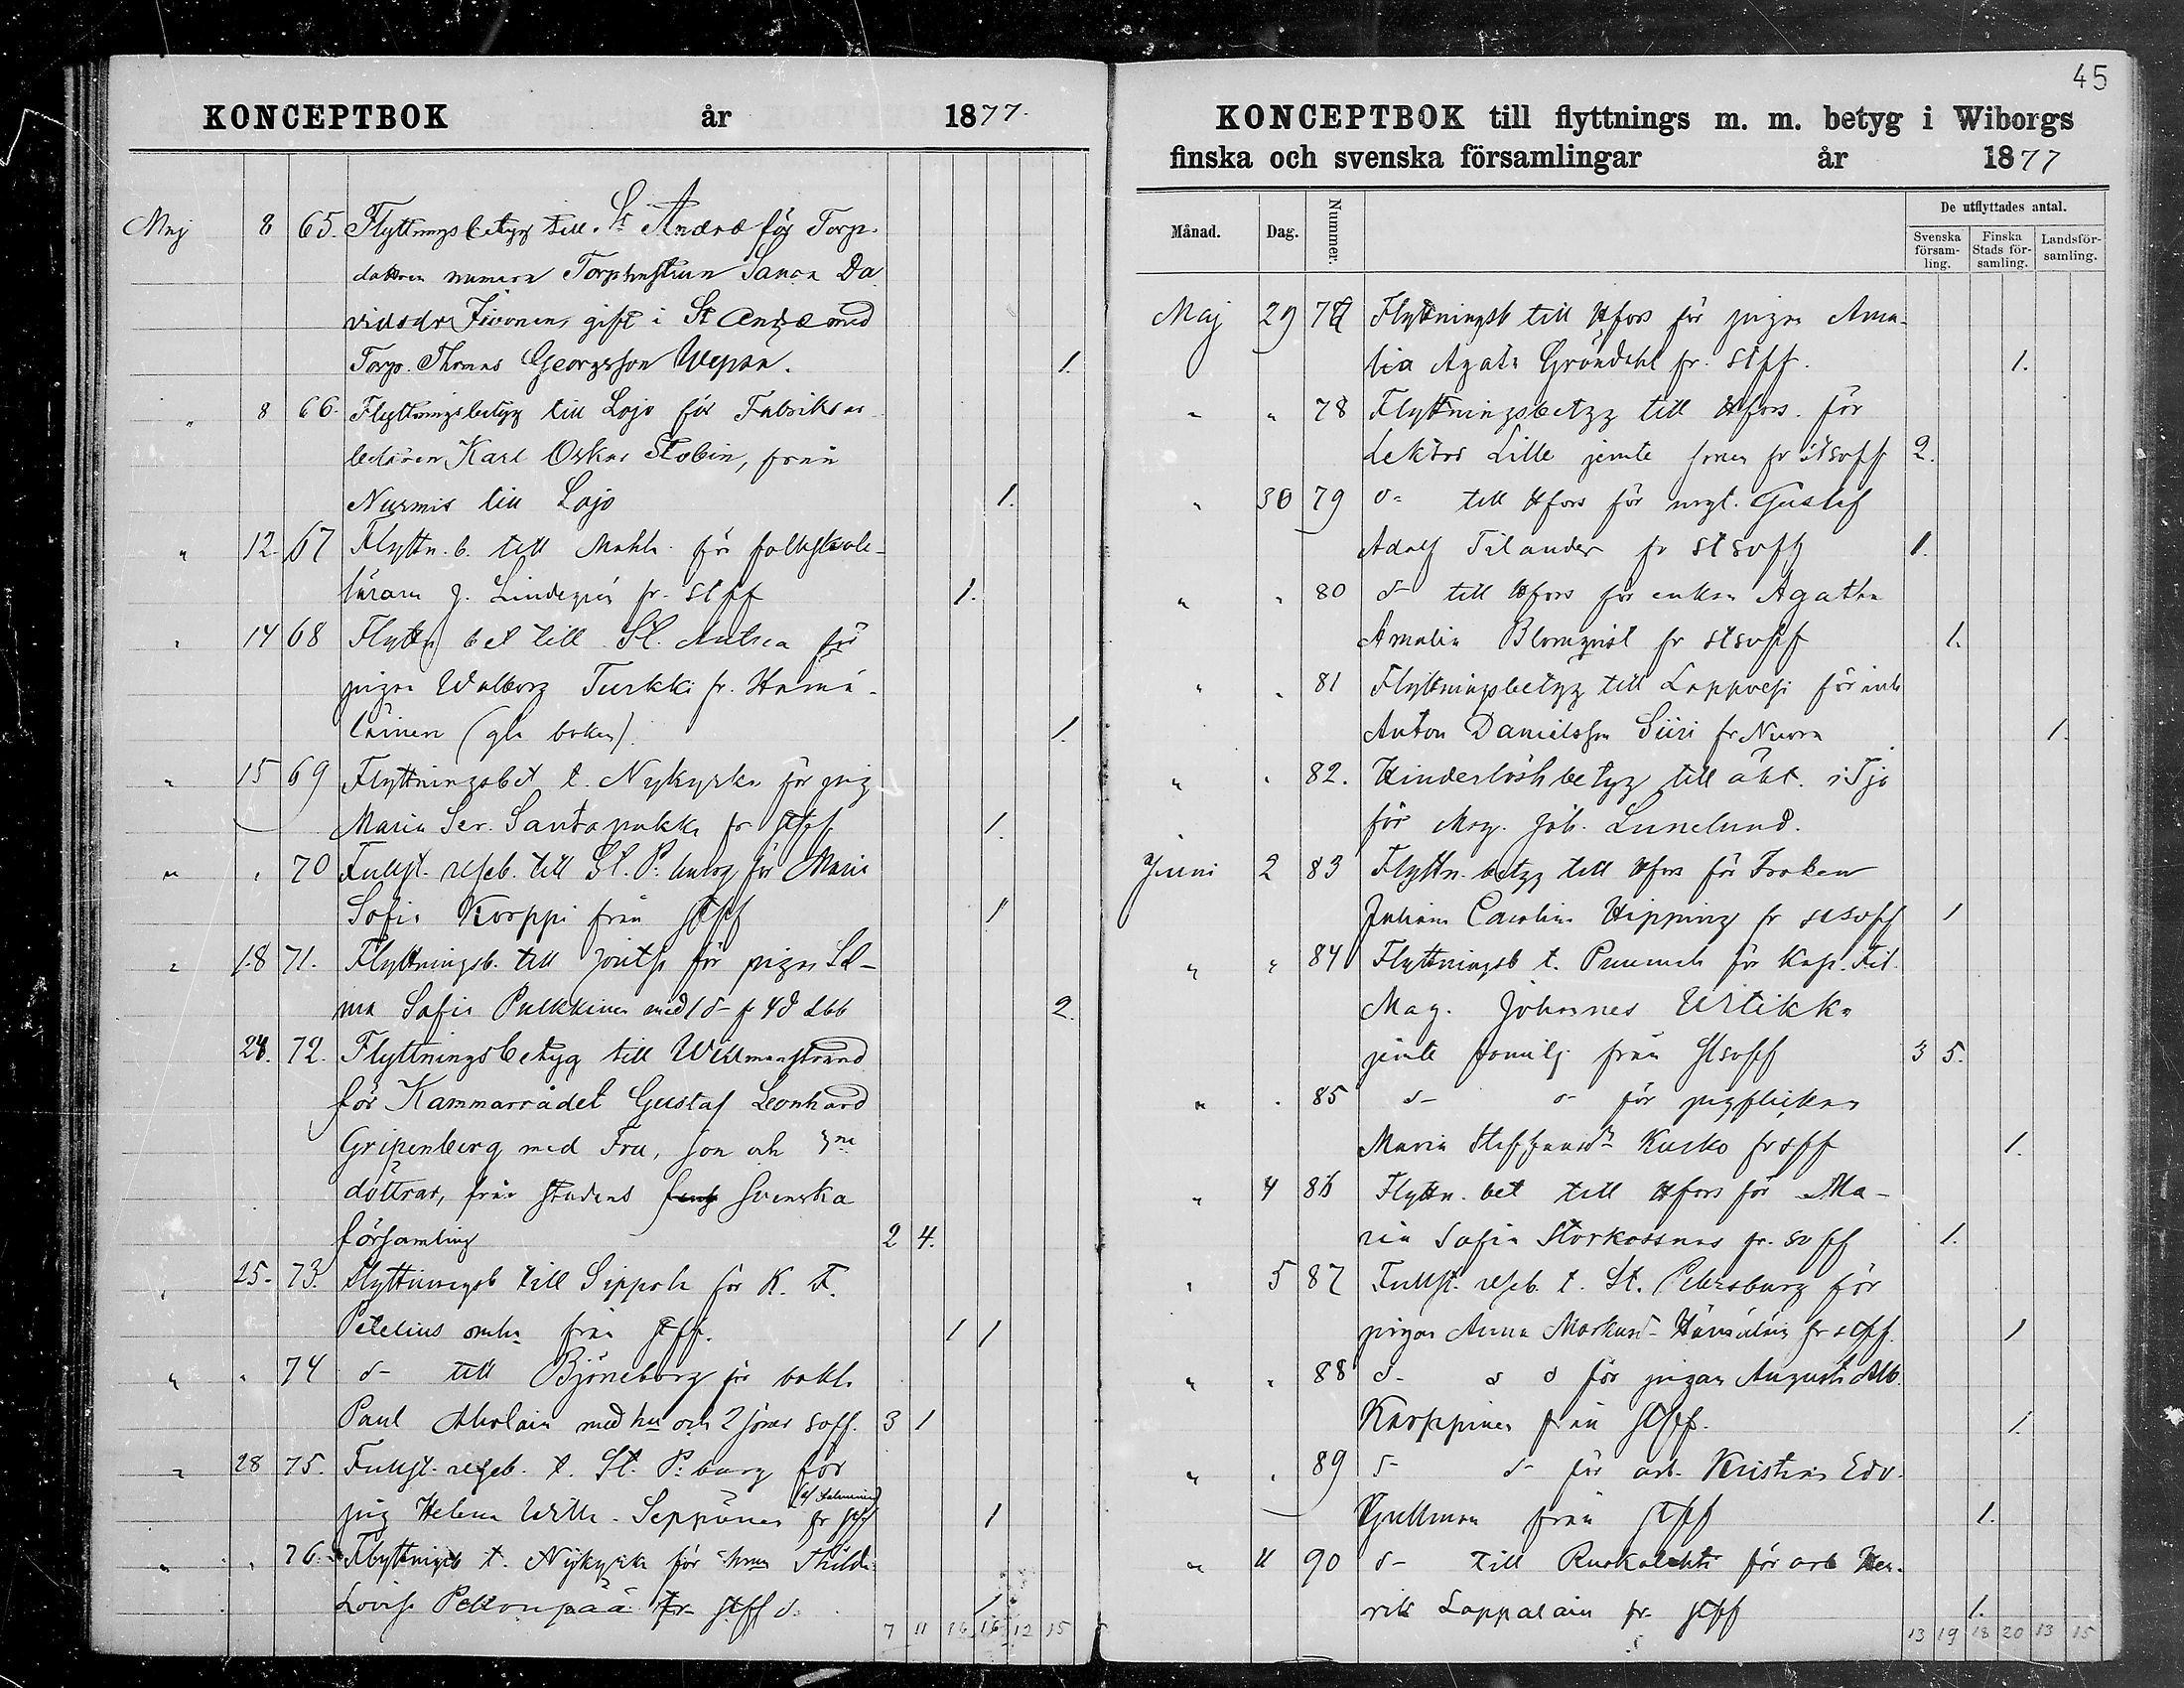 KONCEPTBOK år 1877.
Maj 8 65. Flyttningsbetyg till St Andræ för Torp.
dottren numera Torphustrun Sanna Da
vidsdr Iivonen, gift i St Andræ med
Torp. Thomas Georgsson Wepsä. 1.
" 8 66. Flyttningsbetyg till Lojo för Fabriksar
betaren Karl Oskar Stobin, från
Nurmis till Lojo 1.
" 12. 67 Flyttn. b. till Mohla för folkskole-
läraren J. Lindegrén fr. stff 1.
" 14 68 Flyttn bet till St. Andrea för
pigan Walborg Turkki fr. Hämä-
läinen (gla boken). 1.
" 15 69 Flyttningsbet t. Nykyrka för pig
Maria Ser. Santapukki fr stff 1.
" " 70 Fullst. reseb. till St. P:burg för Maria
Sofia Korppi från stff 1
" 18 71. Flyttningsb. till Jouts för pigan Sel-
ma Sofia Pulkkinen med 1 d- fr 4d Lbb 2.
28. 72. Flyttningsbetyg till Willmanstrand
för Kammarrådet Gustaf Leonhard
Gripenberg med Fru, son och 3ne
döttrar, från stadens svenska
församling 2 4.
" 25. 73. Flyttningsb till Sippola för K. F.
Petelius från stff. 1 1
" " 74 d- till Björneborg för bokh.
Paul Aholain med hu och 2 söner soff. 3 1
" 28 75. Fullst. reseb. t. St. P:burg för
pig Helena Wilh. Seppänen fr stff 1
" " 76. Flyttningsb t. Nykyrk för Hilda
Lovisa Pellonpää fr stff d. 1
7 11 16 16 12 15
45
KONCEPTBOK till flyttnings m. m. betyg i Wiborgs
finska och svenska församlingar år 1877
Månad. Dag. Nummer. De utflyttades antal.
Svenska försam-ling. Finska Stads för-samling. Landsför-samling.
Maj 29 77 Flyttningsb till Hfors för pigan Ama-
lia Agata Gröndahl fr. stff. 1.
" " 78 Flyttningsbetyg till Hfors. för
Lektor Lille jemte sonen fr stsoff 2.
" 30 79 d- till Hfors för mgl. Gustaf
Adolf Tilander fr stsoff 1.
" " 80 d- till Hfors för enkan Agatha
Amalia Blomqvist fr stsoff 1.
" " 81 Flyttningsbetyg till Lappvesi för inh
Anton Danielsson Siiri fr Nuora 1.
" " 82. Hinderlöshbetyg till äkt. i Sjö
för Mag. Joh. Lunelund.
Juni 2 83 Flyttn. betyg till Hfors för Fröken
Juliana Carolina Hipping fr stsoff 1
" " 84 Flyttningsb t. Pummala för Kap. Fil.
Mag. Johannes Utikka
jemte familj från stsoff 3 5.
" . 85 d- d- för pigflickan
Maria Steffansdr Kusko fr stff 1.
" 4 86 Flyttn. bet till Hfors för Ma-
ria Sofia Storkossnas fr. soff 1.
" 5 87 Fullst. reseb. t. St. Petersburg för
pigan Anna Markusd- Hämäläin fr stff. 1
" " 88 d- d d för pigan Augusta Alb.
Karppinen från stff. 1.
" " 89 d- d- för arb. Kristian Edv.
Hjullman från stff 1.
" 11 90 d- till Ruokolahti för arb Hen-
rik Lappalain fr. stff 1.
13 19 18 20 13 15